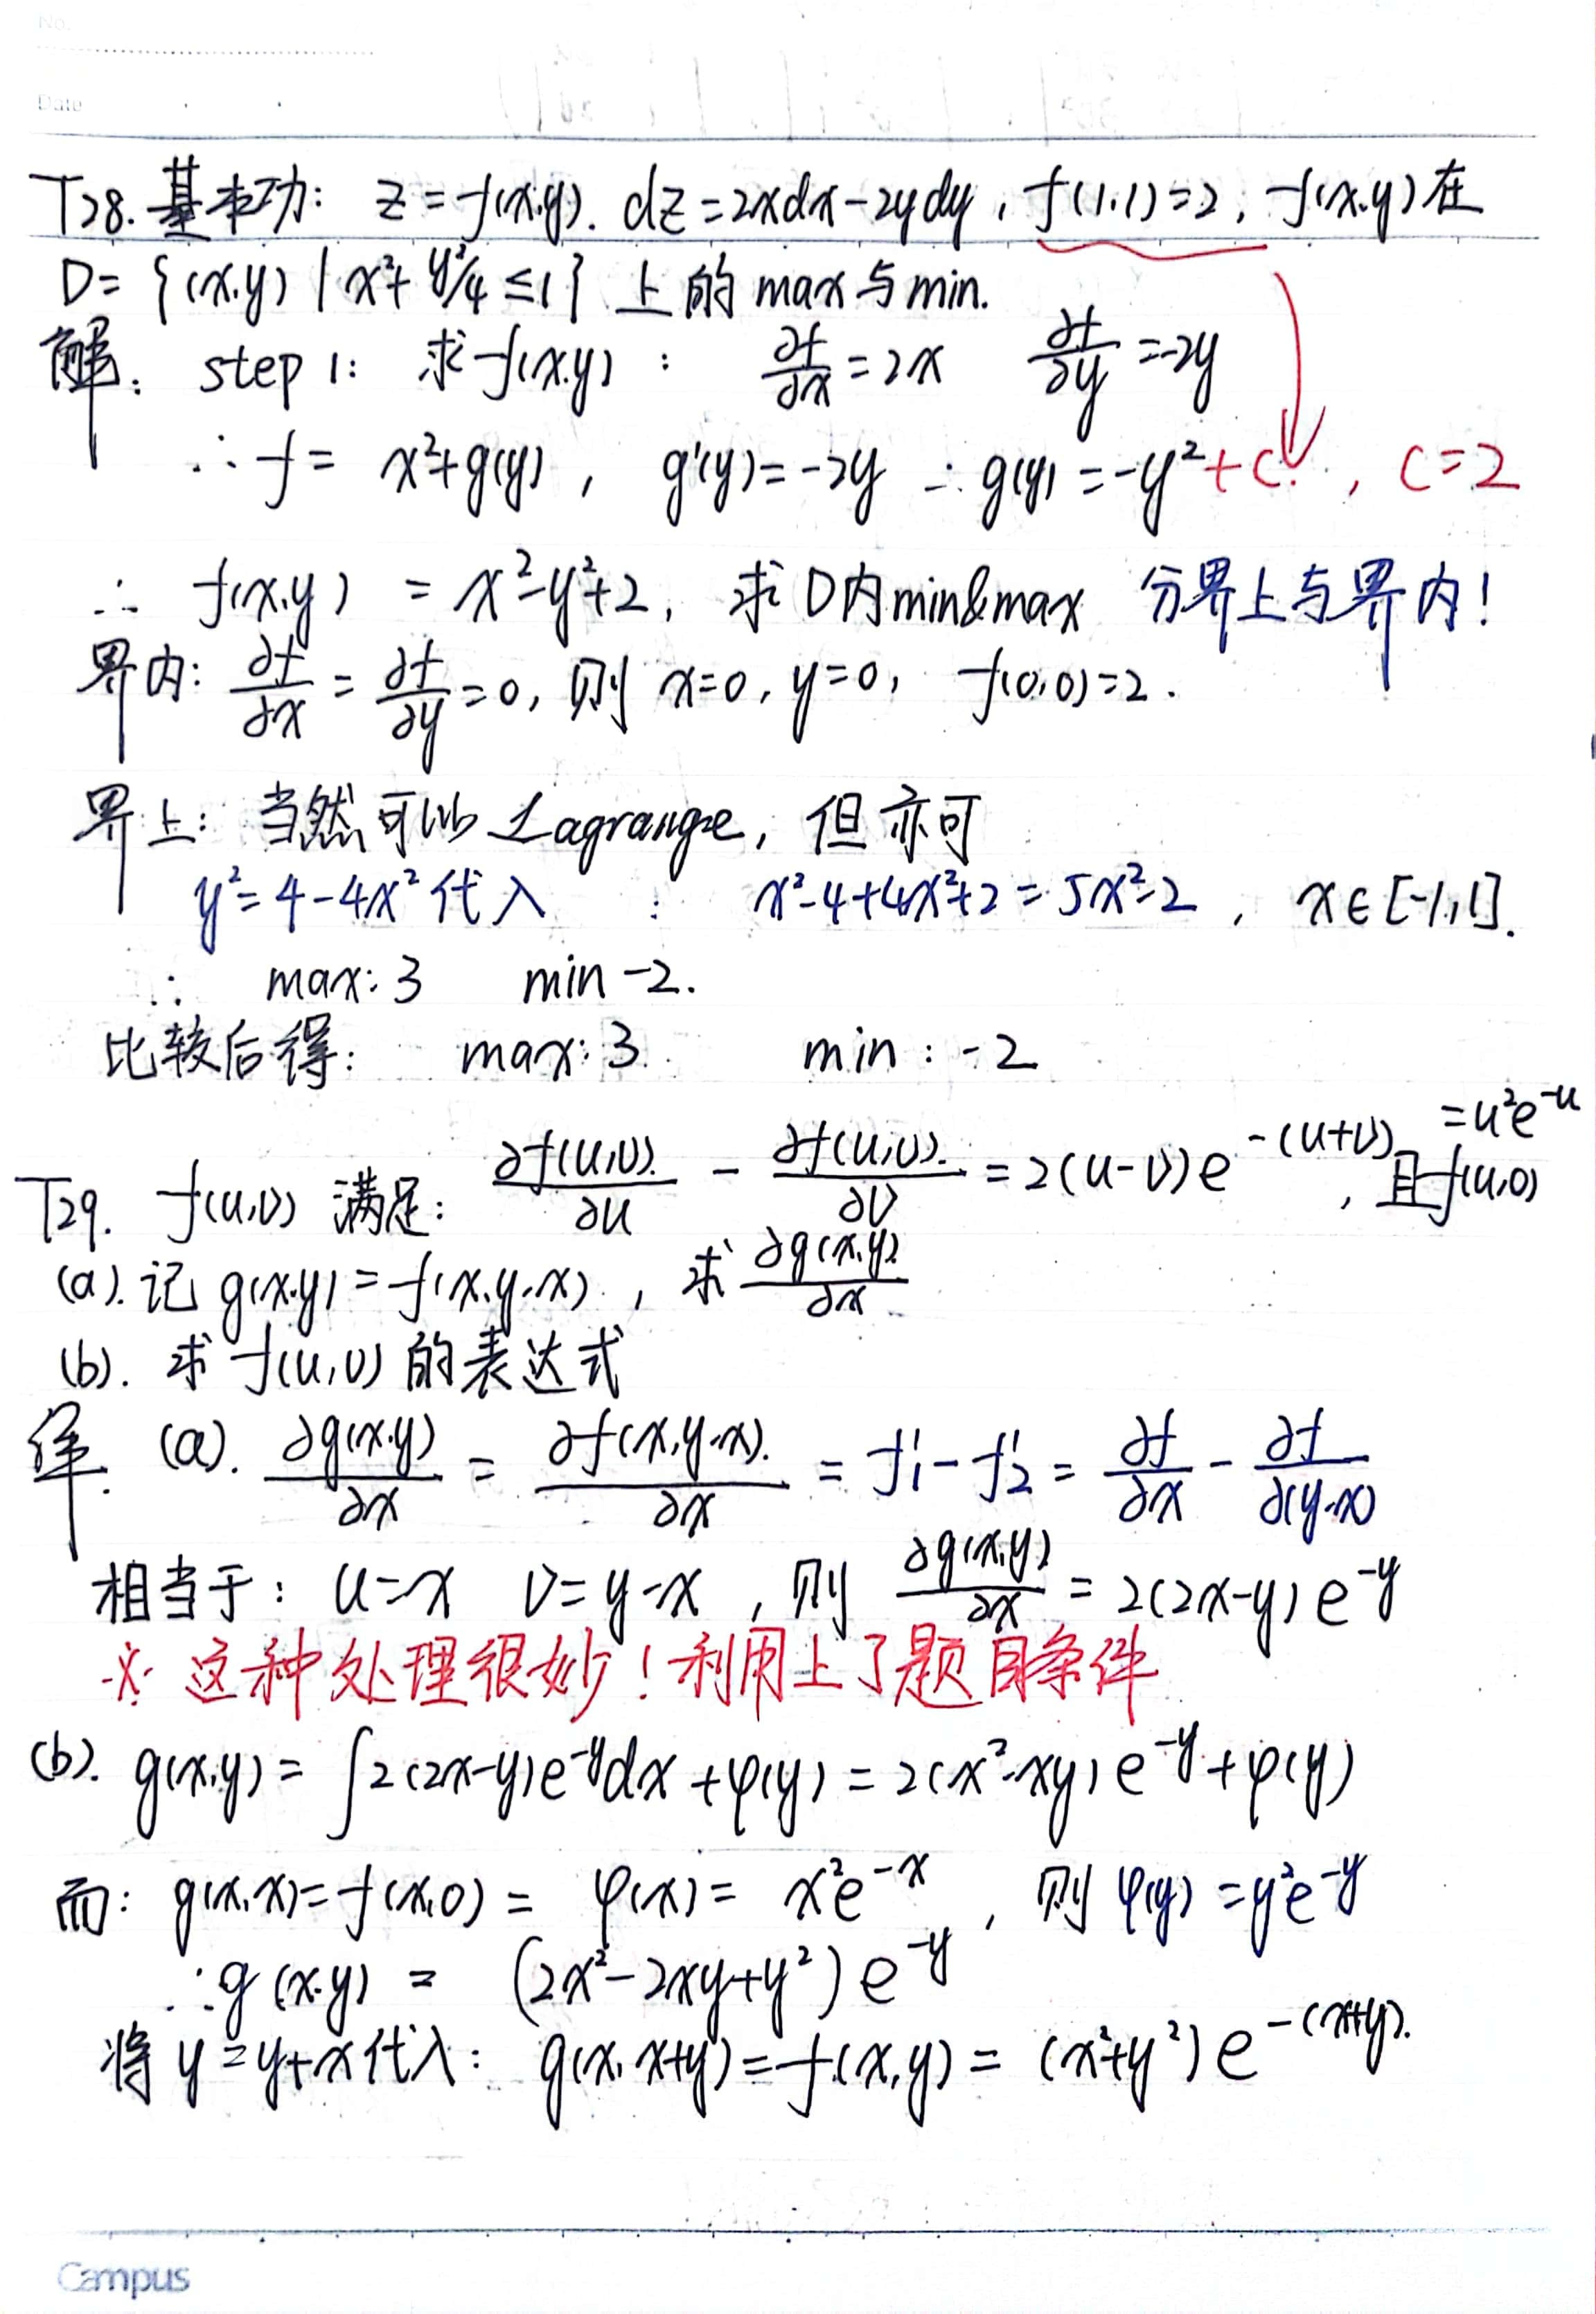 No.
Date
T28. 基本功: z=f(x,y). dz=2xdx-2ydy, f(1,1)=2, f(x,y)在
D={(x,y) | x²+y²/4≤1} 上的 max 与 min.
解: step 1: 求f(x,y): ∂f/∂x=2x ∂f/∂y=-2y
∴ f= x²+g(y), g'(y)=-2y ∴ g(y)=-y²+C, C=2
∴ f(x,y) = x²-y²+2, 求D内min&max 分界上与界内!
界内: ∂f/∂x=∂f/∂y=0, 则 x=0, y=0, f(0,0)=2.
界上: 当然可以 Lagrange, 但亦可
y²=4-4x² 代入: x²-4+4x²+2=5x²-2, x∈[-1,1].
∴ max: 3 min -2.
比较后得: max: 3 min: -2
T29. f(u,v) 满足: ∂f(u,v)/∂u - ∂f(u,v)/∂v = 2(u-v)e^{-(u+v)}, 且f(u,0) =u²e^{-u}
(a). 记 g(x,y)=f(x,y-x), 求 ∂g(x,y)/∂x
(b). 求 f(u,v) 的表达式
解. (a). ∂g(x,y)/∂x = ∂f(x,y-x)/∂x = f'₁-f'₂ = ∂f/∂x - ∂f/∂(y-x)
相当于: u=x v=y-x, 则 ∂g(x,y)/∂x = 2(2x-y)e^{-y}
※ 这种处理很妙! 利用上了题目条件
(b). g(x,y)= ∫2(2x-y)e^{-y}dx+φ(y) = 2(x²-xy)e^{-y}+φ(y)
而: g(x,x)=f(x,0)= φ(x)= x²e^{-x}, 则 φ(y)=y²e^{-y}
∴ g(x,y) = (2x²-2xy+y²)e^{-y}
将 y=y+x代入: g(x,x+y)=f(x,y)= (x²+y²)e^{-(x+y)}.
Campus